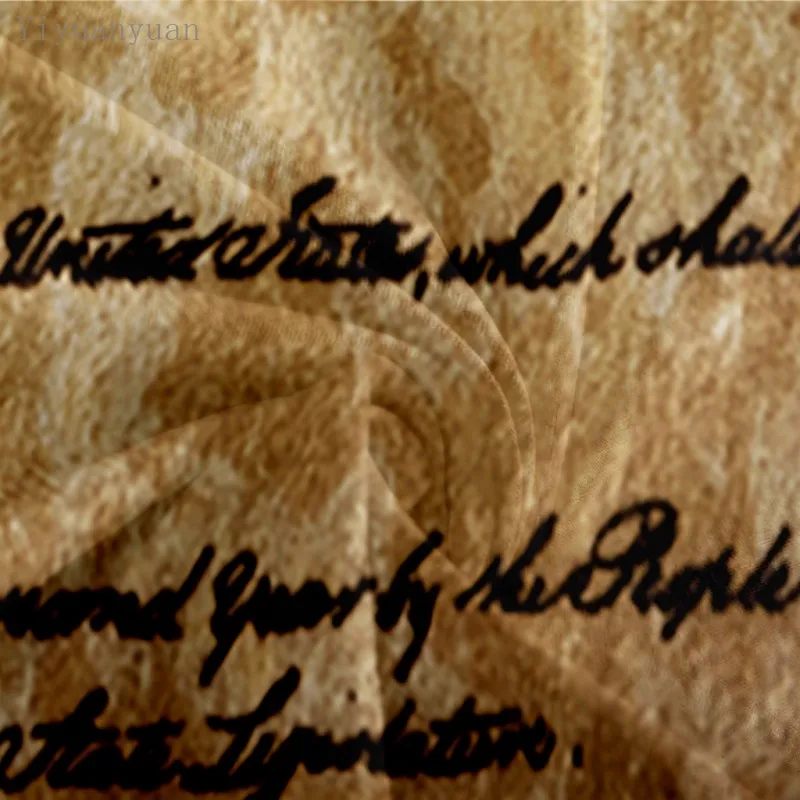 Yiyuanyuan
United States, which shall
second Year by the People
State Legislature.